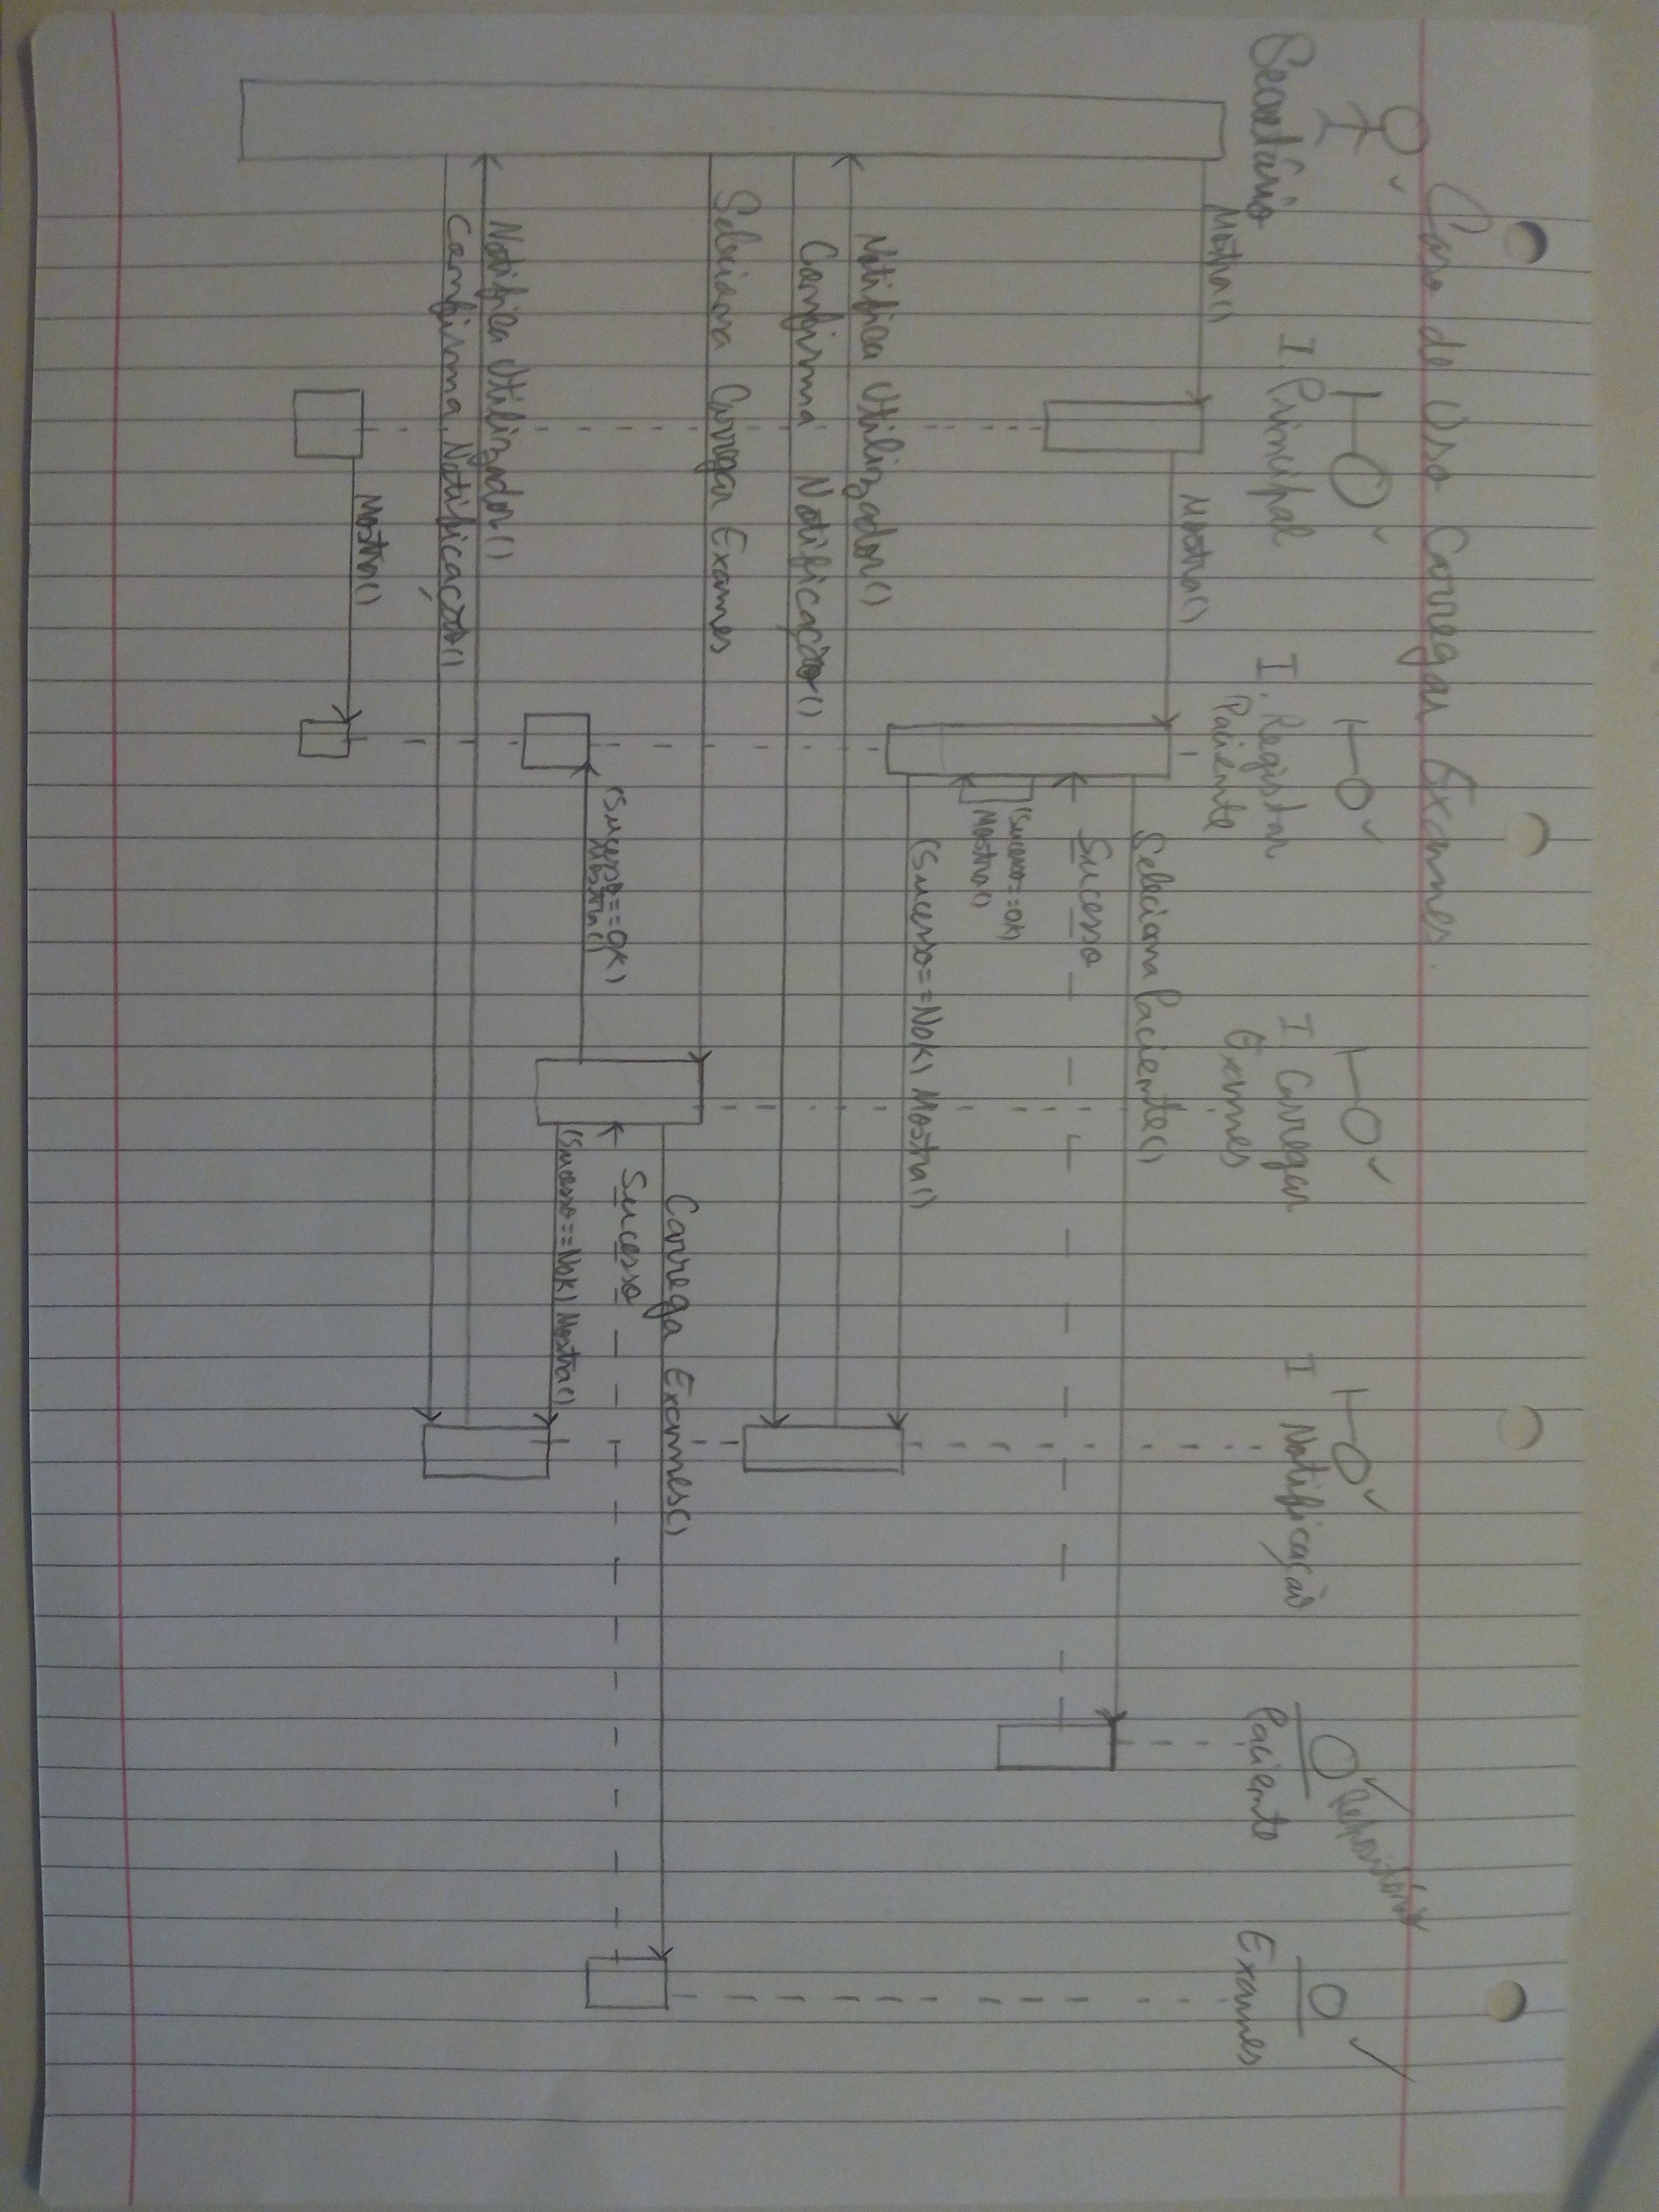 Caso de Uso Carregar Exames.
Repositório
Secretário
I. Principal
I. Registar
Paciente
I Carregar
Exames
I Notificação
Paciente
Exames
Mostra()
Mostra()
Seleciona Paciente()
Sucesso
(Sucesso==OK)
Mostra()
(Sucesso==NOK) Mostra()
Notifica Utilizador()
Confirma Notificação()
Seleciona Carregar Exames
Carrega Exames()
Sucesso
(Sucesso==OK)
Mostra()
(Sucesso==NOK) Mostra()
Notifica Utilizador()
Confirma Notificação()
Mostra()